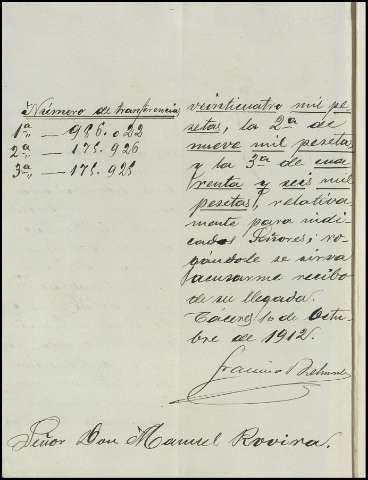 Número de transferencias
1ª,, — 986.022
2ª,, — 175.926
3ª,, — 175.925
veinticuatro mil pe
setas, la 2ª de
nueve mil pesetas
y la 3ª de cua
renta y seis mil
pesetas, relativa-
mente para indi-
cados Señores; ro-
gándole se sirva
acusarme recibo
de su llegada.
Cáceres 10 de Octu-
bre de 1912.
Señor Don Manuel Rovira.